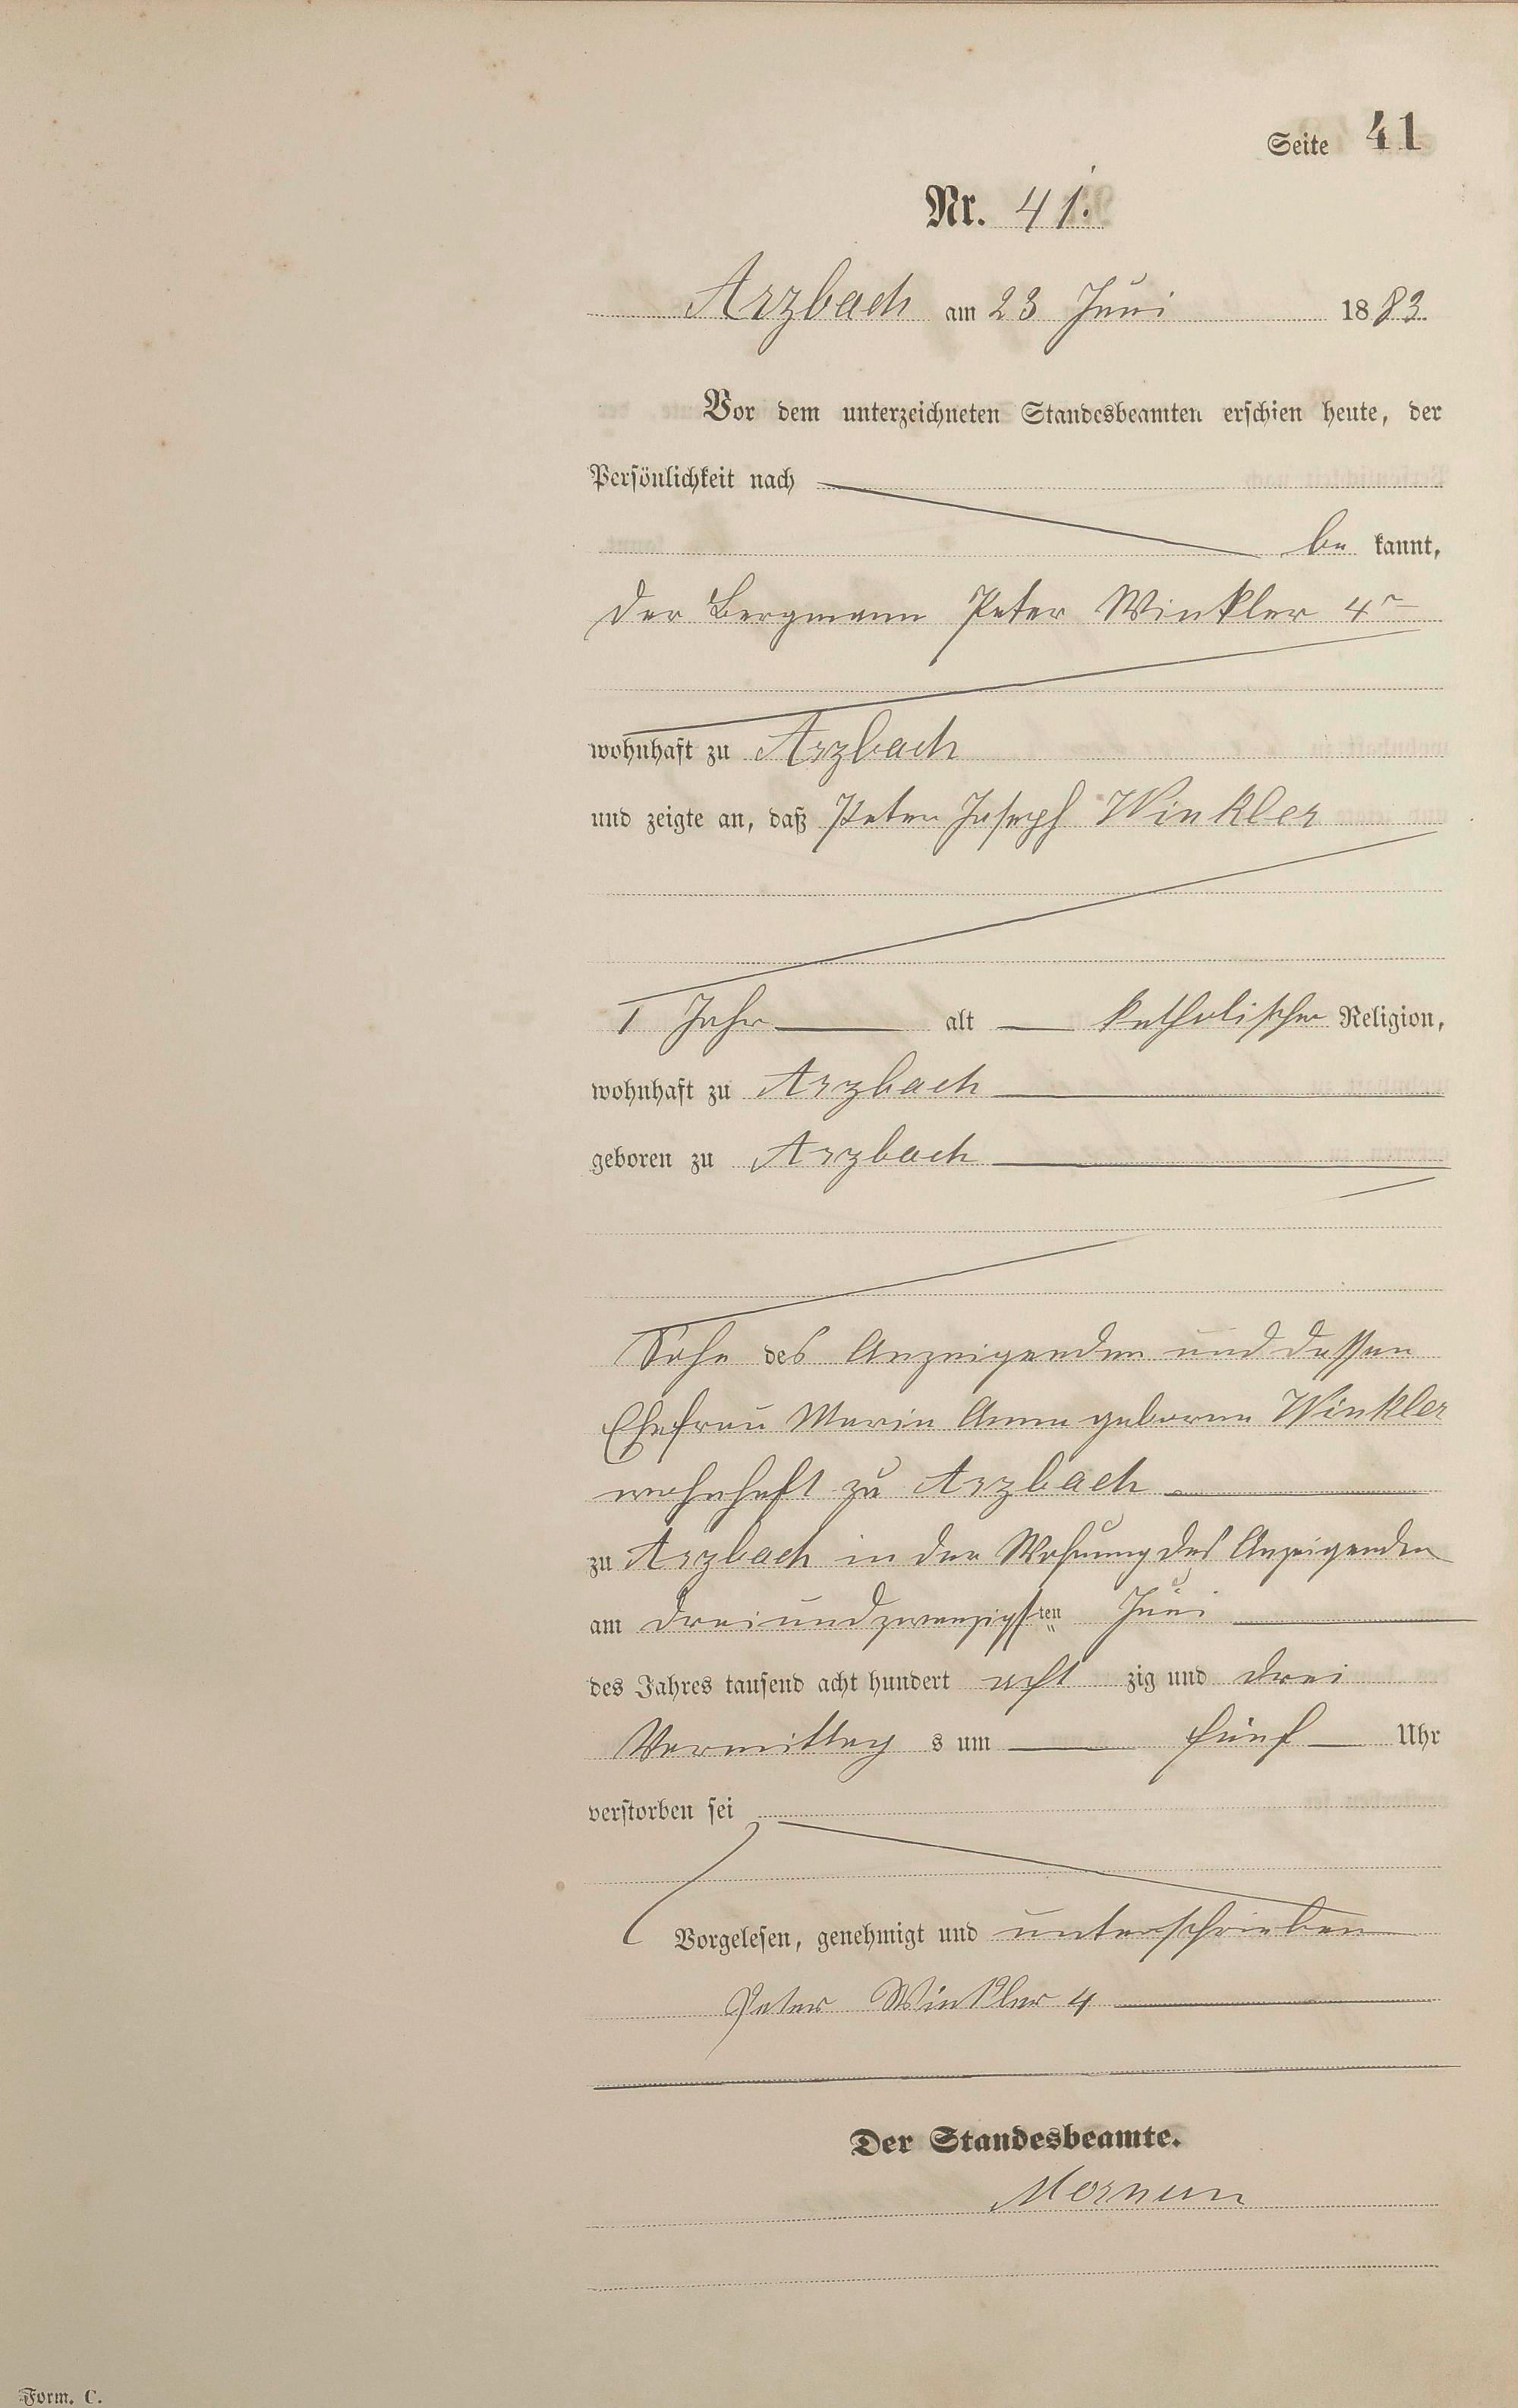 Seite 41
Nr. 41.
Arzbach am 23 Juni 1883.
Vor dem unterzeichneten Standesbeamten erschien heute, der
Persönlichkeit nach
be kannt,
der Bergmann Peter Winkler 4r
wohnhaft zu Arzbach
und zeigte an, daß Peter Joseph Winkler
1 Jahr alt katholischer Religion,
wohnhaft zu Arzbach
geboren zu Arzbach
Sohn des Anzeigenden und dessen
Ehefrau Maria Anna geborene Winkler
wohnhaft zu Arzbach
zu Arzbach in der Wohnung des Anzeigenden
am dreiundzwanzigsten Juni
des Jahres tausend acht hundert acht zig und drei
Vormittag s um fünf Uhr
verstorben sei
Vorgelesen, genehmigt und unterschrieben
Peter Winkler 4
Der Standesbeamte.
Form. C.